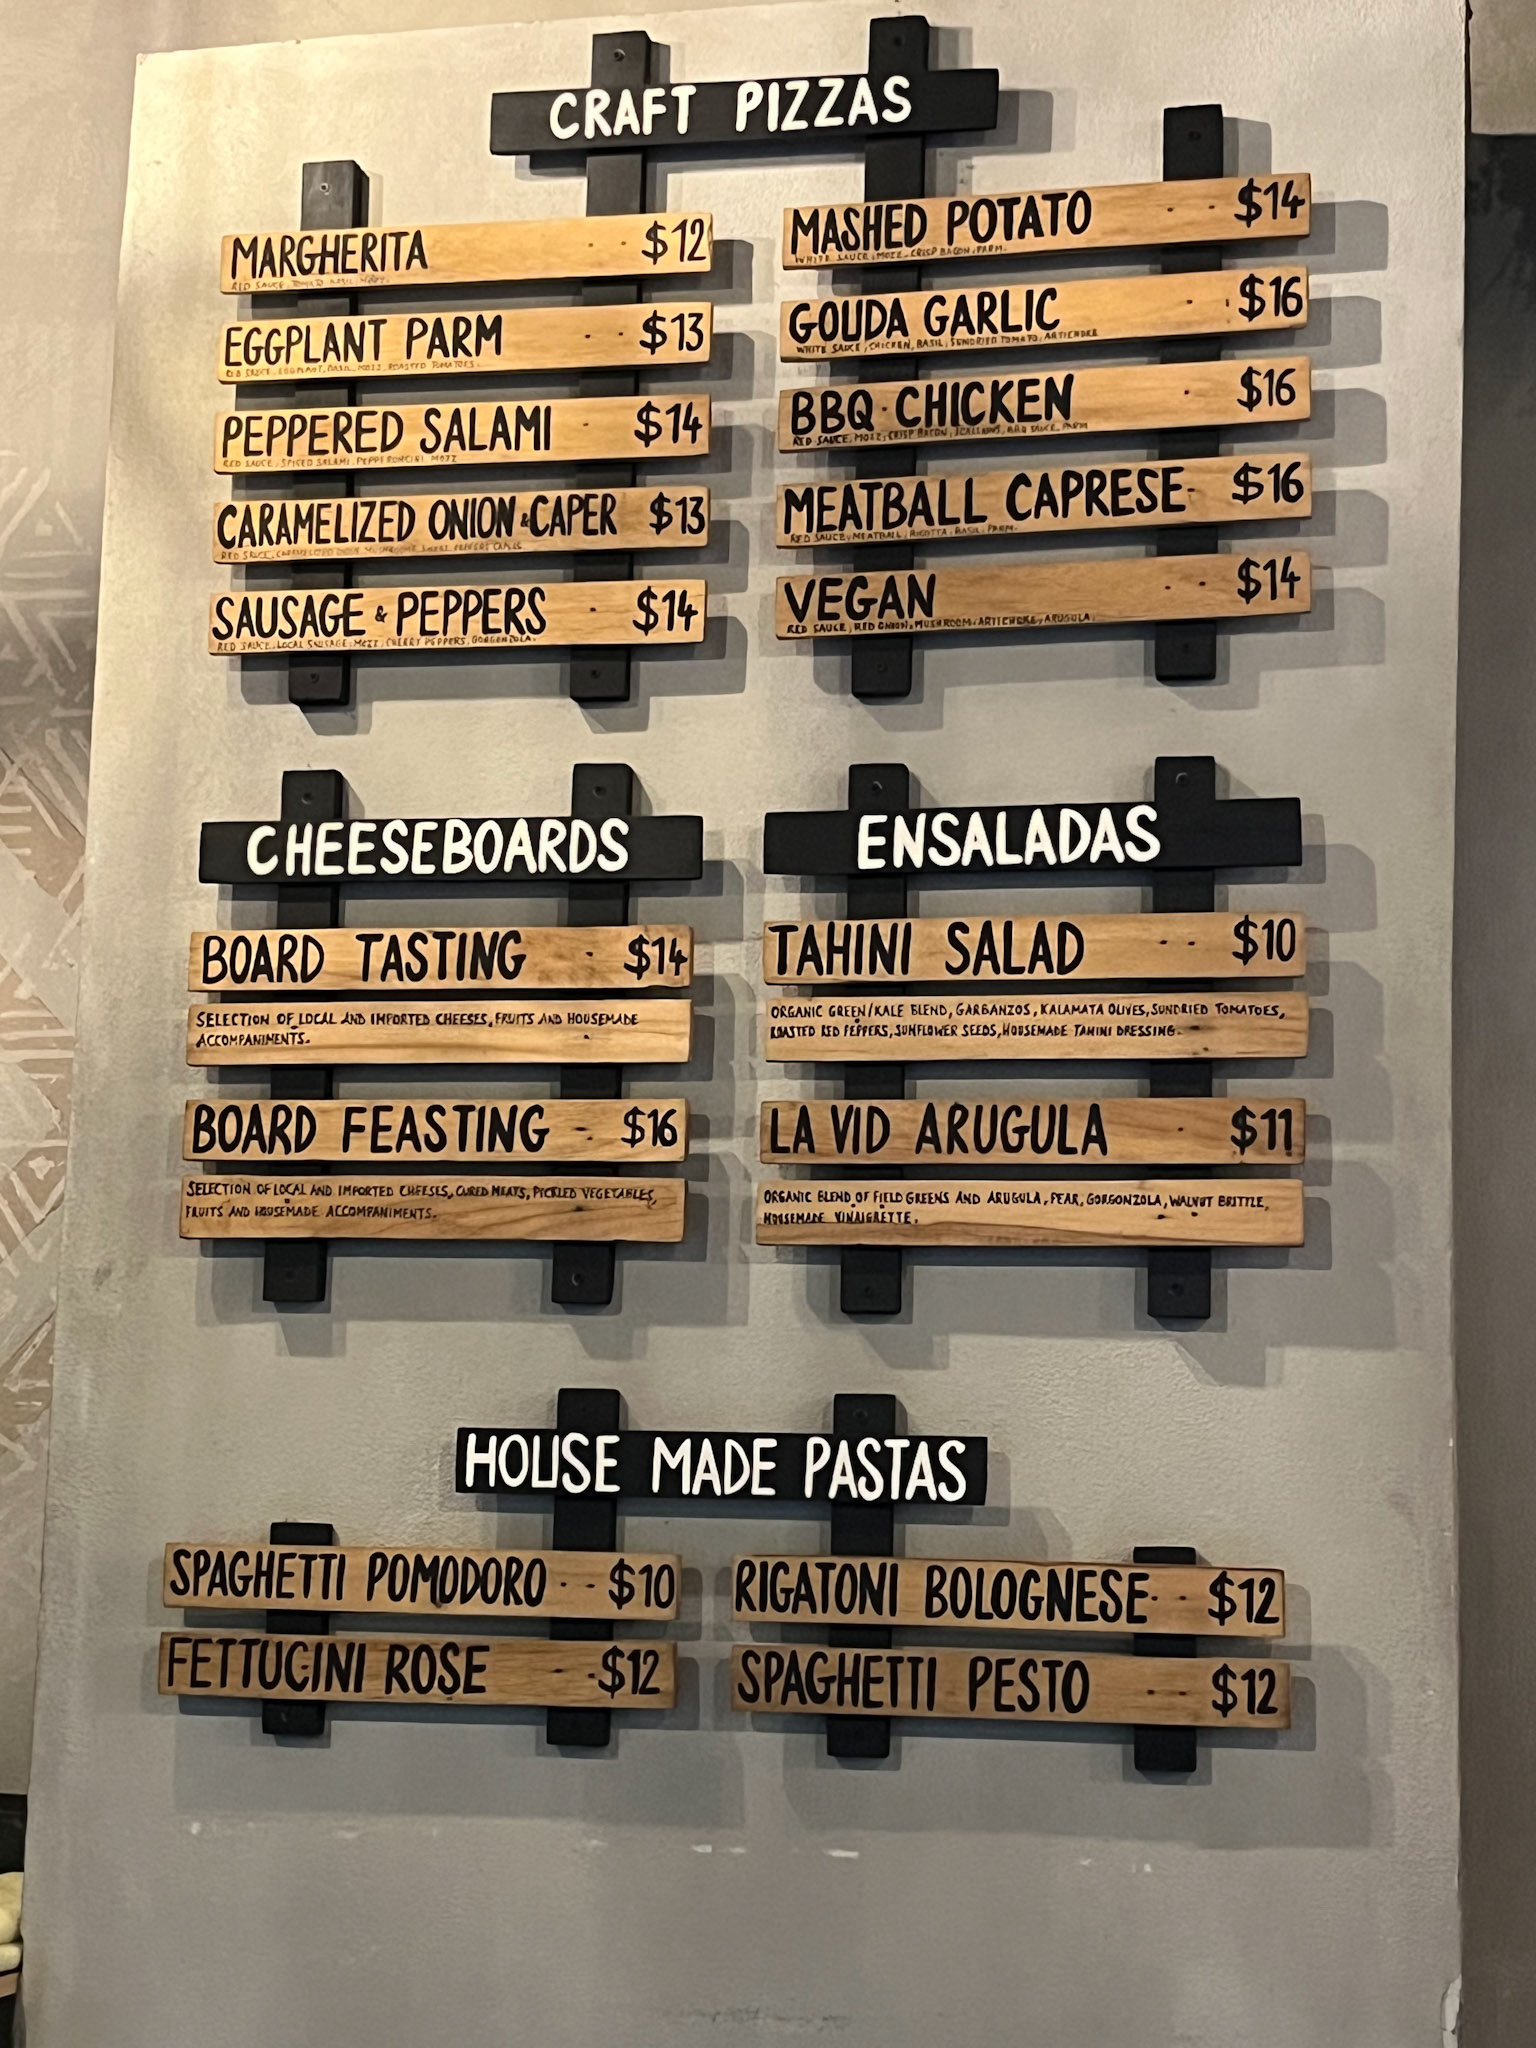 CRAFT PIZZAS
MARGHERITA $12
RED SAUCE,
EGGPLANT PARM $13
RED SAUCE, EGGPLANT, BASIL, MOZZ, ROASTED TOMATOES.
PEPPERED SALAMI $14
RED SAUCE, SPICED SALAMI, PEPPERONCINI, MOZZ
CARAMELIZED ONION & CAPER $13
RED SAUCE, CARAMELIZED ONION, MUSHROOMS,
SAUSAGE & PEPPERS $14
RED SAUCE, LOCAL SAUSAGE, MOZZ, CHERRY PEPPERS, GORGONZOLA.
MASHED POTATO $14
WHITE SAUCE, MOZZ, CRISP BACON, PARM.
GOUDA GARLIC $16
WHITE SAUCE, CHICKEN, BASIL, SUNDRIED TOMATO, ARTICHOKE
BBQ CHICKEN $16
RED SAUCE, MOZZ, CRISP BACON, SCALLIONS, BBQ SAUCE, PARM
MEATBALL CAPRESE $16
RED SAUCE, MEATBALL, RICOTTA, BASIL, PARM.
VEGAN $14
RED SAUCE, RED ONION, MUSHROOM, ARTICHOKE, ARUGULA.
CHEESEBOARDS
BOARD TASTING $14
SELECTION OF LOCAL AND IMPORTED CHEESES, FRUITS AND HOUSEMADE
ACCOMPANIMENTS.
BOARD FEASTING $16
SELECTION OF LOCAL AND IMPORTED CHEESES, CURED MEATS, PICKLED VEGETABLES,
FRUITS AND HOUSEMADE ACCOMPANIMENTS.
ENSALADAS
TAHINI SALAD $10
ORGANIC GREEN/KALE BLEND, GARBANZOS, KALAMATA OLIVES, SUNDRIED TOMATOES,
ROASTED RED PEPPERS, SUNFLOWER SEEDS, HOUSEMADE TAHINI DRESSING.
LA VID ARUGULA $11
ORGANIC BLEND OF FIELD GREENS AND ARUGULA, PEAR, GORGONZOLA, WALNUT BRITTLE,
HOUSEMADE VINAIGRETTE.
HOUSE MADE PASTAS
SPAGHETTI POMODORO $10
FETTUCINI ROSE $12
RIGATONI BOLOGNESE $12
SPAGHETTI PESTO $12